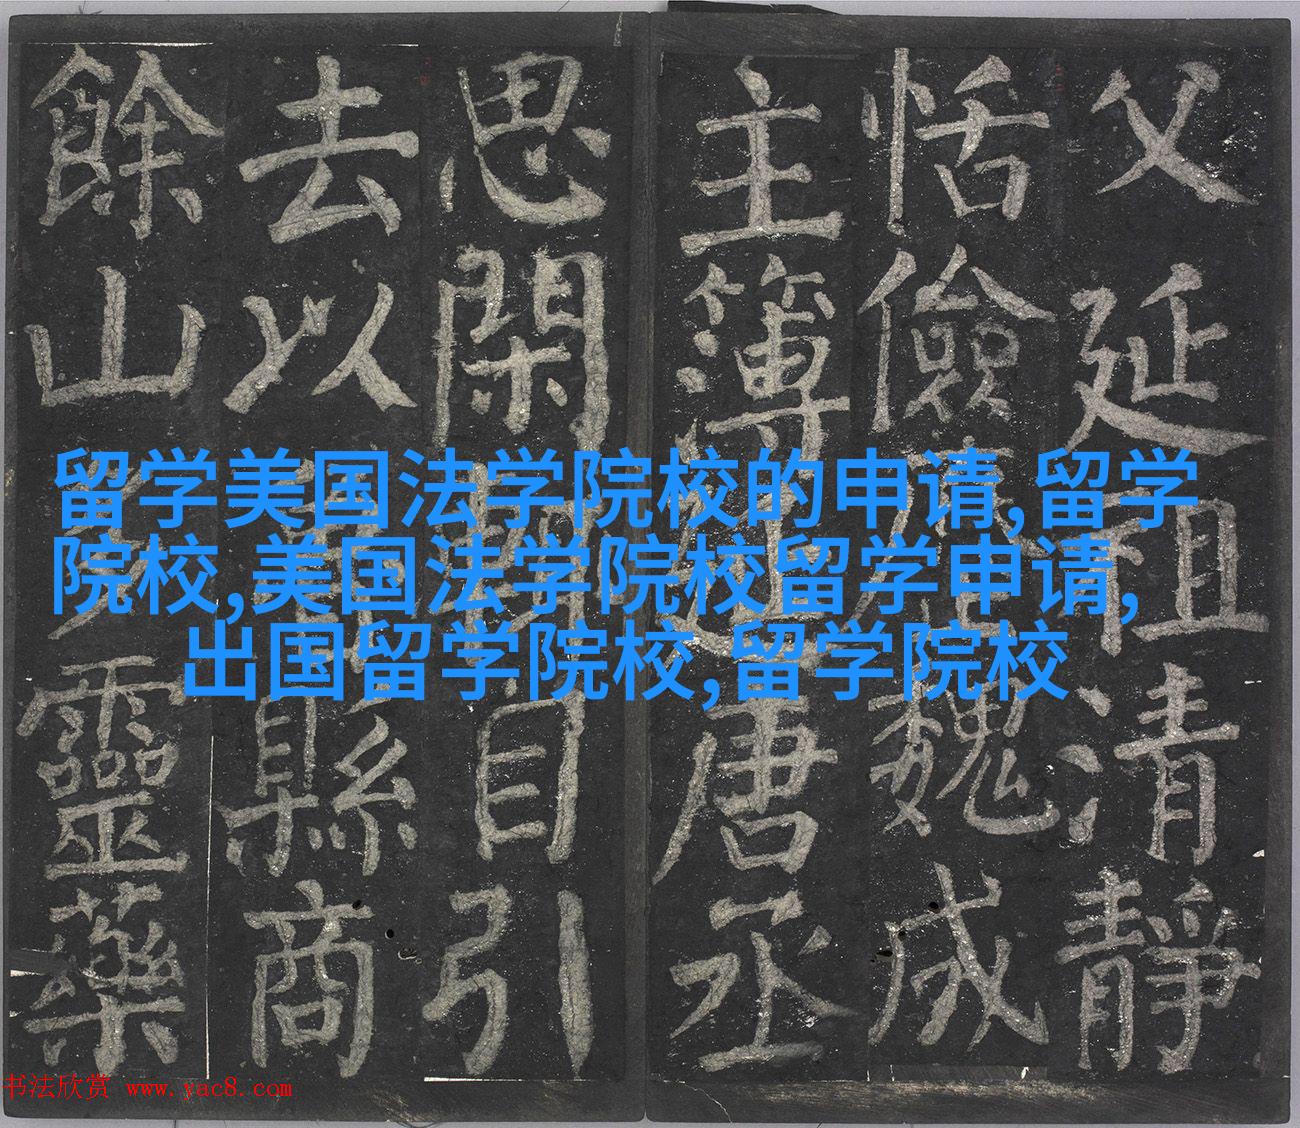 父延祖清靜
恬儉魏成
主簿延唐丞
思閑自引
去以縣商
餘山多靈藥
留学美国法学院校的申请,留学
院校,美国法学院校留学申请,
出国留学院校,留学院校
书法欣赏 www.yac8.com